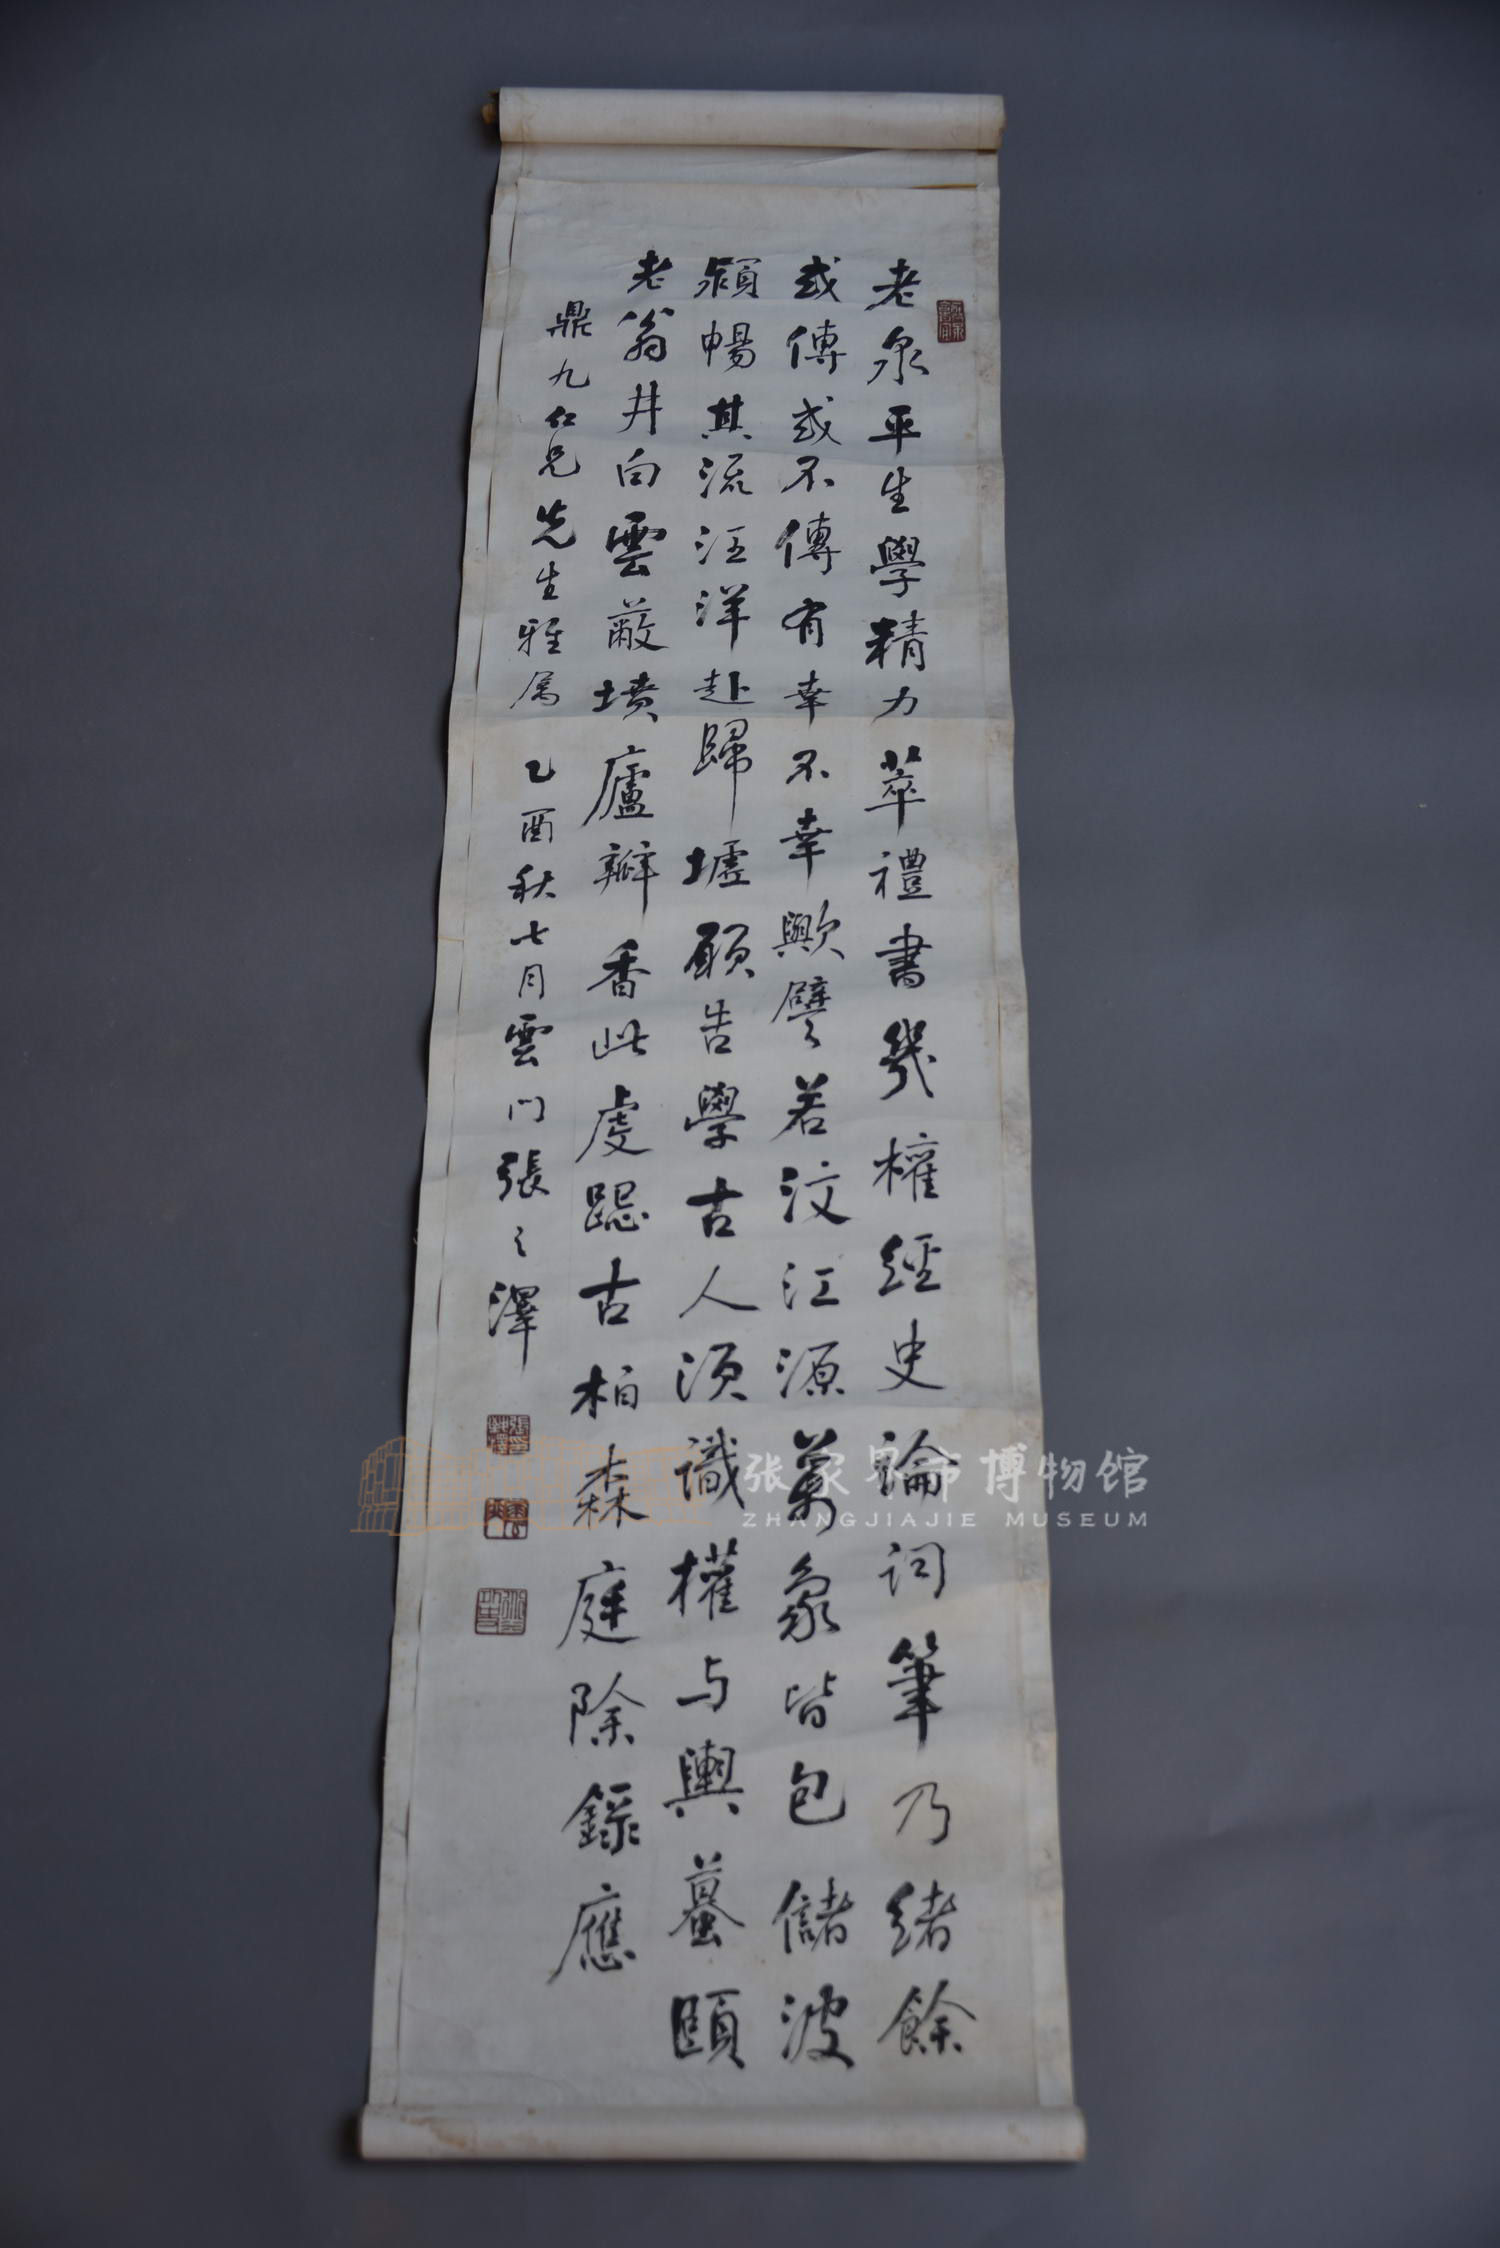 老泉平生學精力萃禮書幾權經史論詞筆乃緒餘
或傳或不傳有幸不幸歟譬若汶江源萬象皆包儲波
瀾暢其流汪洋赴歸墟願告學古人須識權与輿蟇頤
老翁井白雲蔽墳廬瓣香此虔跽古柏森庭除錄應
鼎九仁兄先生雅屬 乙酉秋七月雲門張之澤
张家界市博物馆
ZHANGJIAJIE MUSEUM